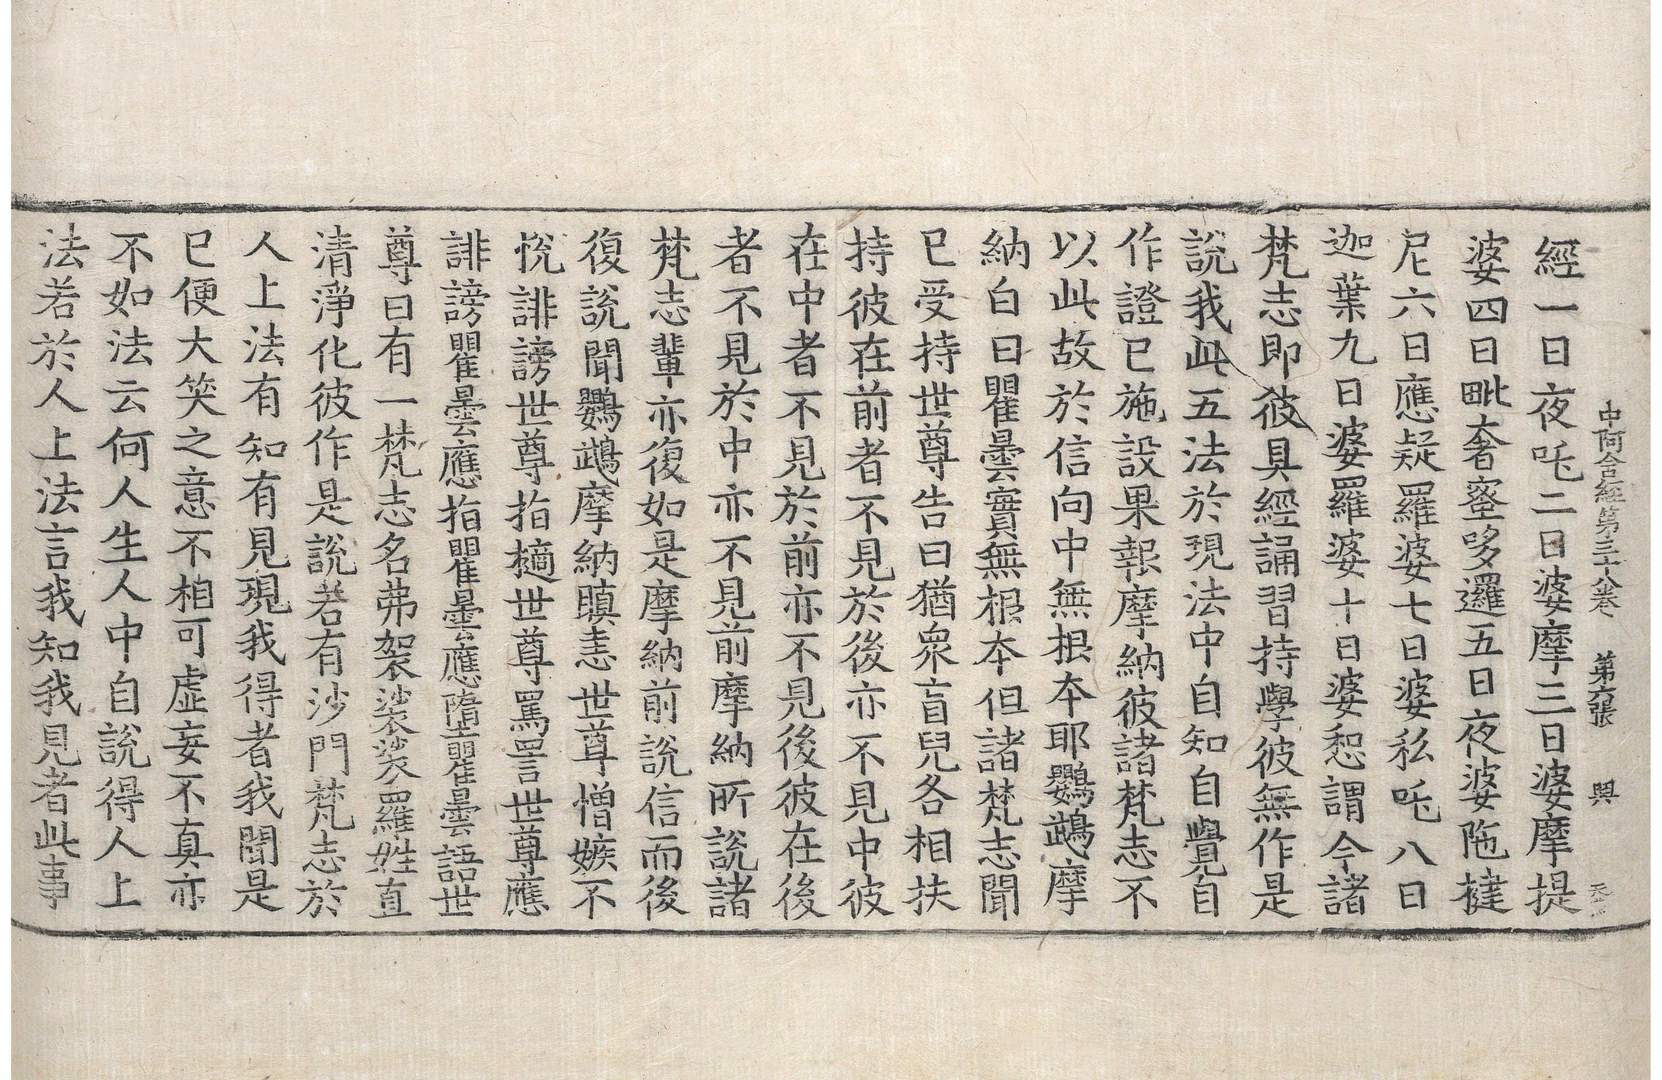 中阿含經第三十八卷 第六張 興
經一曰夜吒二曰婆摩三曰婆摩提
婆四曰毗奢蜜哆邏五曰夜婆陁揵
尼六曰應疑羅婆七曰婆私吒八曰
迦葉九曰婆羅婆十曰婆惒謂今諸
梵志即彼具經誦習持學彼無作是
說我此五法於現法中自知自覺自
作證已施設果報摩納彼諸梵志不
以此故於信向中無根本耶鸚鵡摩
納白曰瞿曇實無根本但諸梵志聞
已受持世尊告曰猶衆盲兒各相扶
持彼在前者不見於後亦不見中彼
在中者不見於前亦不見後彼在後
者不見於中亦不見前摩納所說諸
梵志輩亦復如是摩納前說信而後
復說聞鸚鵡摩納瞋恚世尊憎嫉不
悅誹謗世尊指擿世尊罵詈世尊應
誹謗瞿曇應指瞿曇應墮瞿曇語世
尊曰有一梵志名弗袈裟裟羅姓直
清淨化彼作是說若有沙門梵志於
人上法有知有見現我得者我聞是
已便大笑之意不相可虛妄不真亦
不如法云何人生人中自說得人上
法若於人上法言我知我見者此事